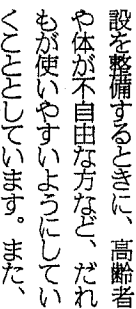 設を整備するときに、高齢者
や体が不自由な方など、だれ
もが使いやすいようにしてい
くこととしています。また、